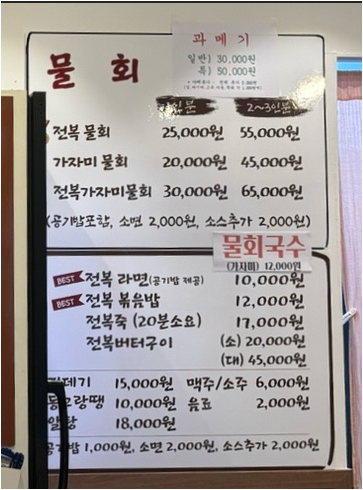 과메기
일반) 30,000원
특) 50,000원
물회
2~3인분
전복 물회 25,000원 55,000원
가자미 물회 20,000원 45,000원
전복가자미물회 30,000원 65,000원
(공기밥포함, 소면 2,000원, 소스추가 2,000원)
물회국수
(가자미) 12,000원
BEST 전복 라면(공기밥 제공) 10,000원
BEST 전복 볶음밥 12,000원
전복죽 (20분소요) 17,000원
전복버터구이 (소) 20,000원
(대) 45,000원
15,000원 맥주/소주 6,000원
10,000원 음료 2,000원
알탕 18,000원
공기밥 1,000원, 소면 2,000원, 소스추가 2,000원